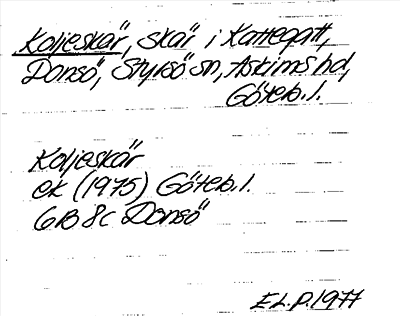 Koljeskär, skär i Kattegatt,
Donsö, Styrsö sn, Askims hd,
Göteb. l.
Koljeskär
ek (1975) Göteb. l.
6B 8c Donsö
E L. P. 1977